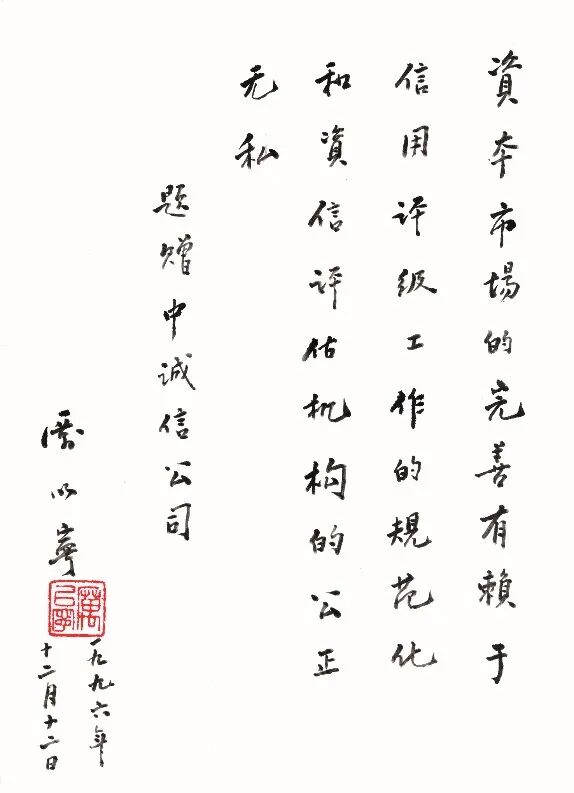 資本市場的完善有賴于
信用评级工作的規范化
和資信评估机构的公正
无私
题赠中诚信公司
厲以寧
一九九六年
十二月十二日